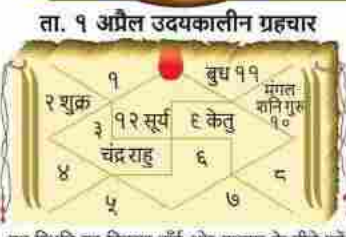 ता. १ अप्रैल उदयकालीन ग्रहचार
१
बुध ११
२ शुक्र
मंगल
शनि गुरु
१०
३
१२ सूर्य
९ केतु
चंद्र राहु
४
६
८
५
७